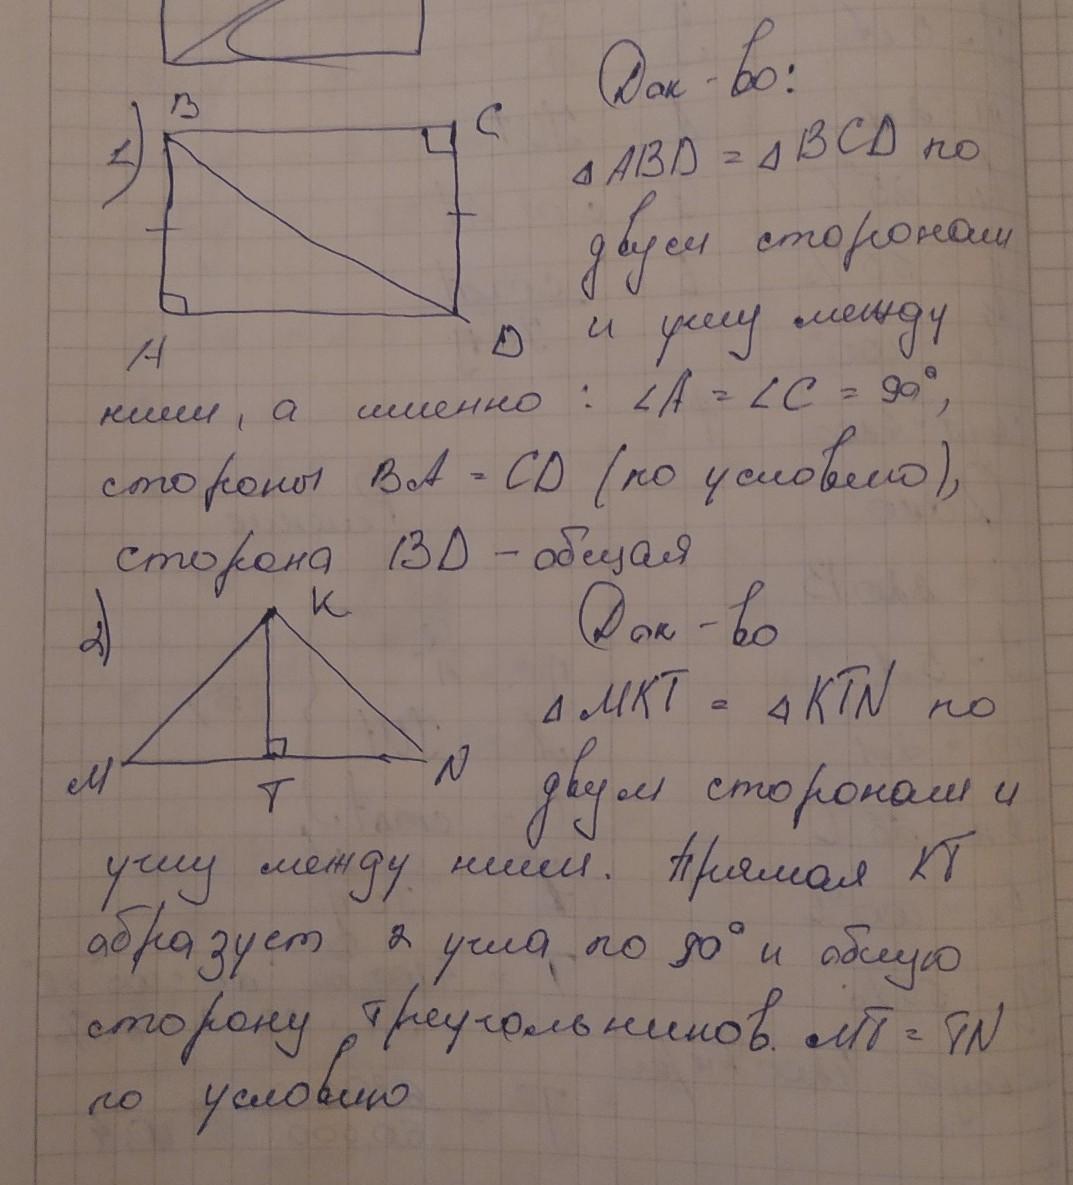 Док-во:
1)
B
C
A
D
△ABD = △BCD по
двум сторонам
и углу между
ними, а именно: ∠A = ∠C = 90°,
стороны BA = CD (по условию),
сторона BD - общая
2)
K
M
T
N
Док-во
△MKT = △KTN по
двум сторонам и
углу между ними. Прямая KT
образует 2 угла по 90° и общую
сторону треугольников. MT = TN
по условию